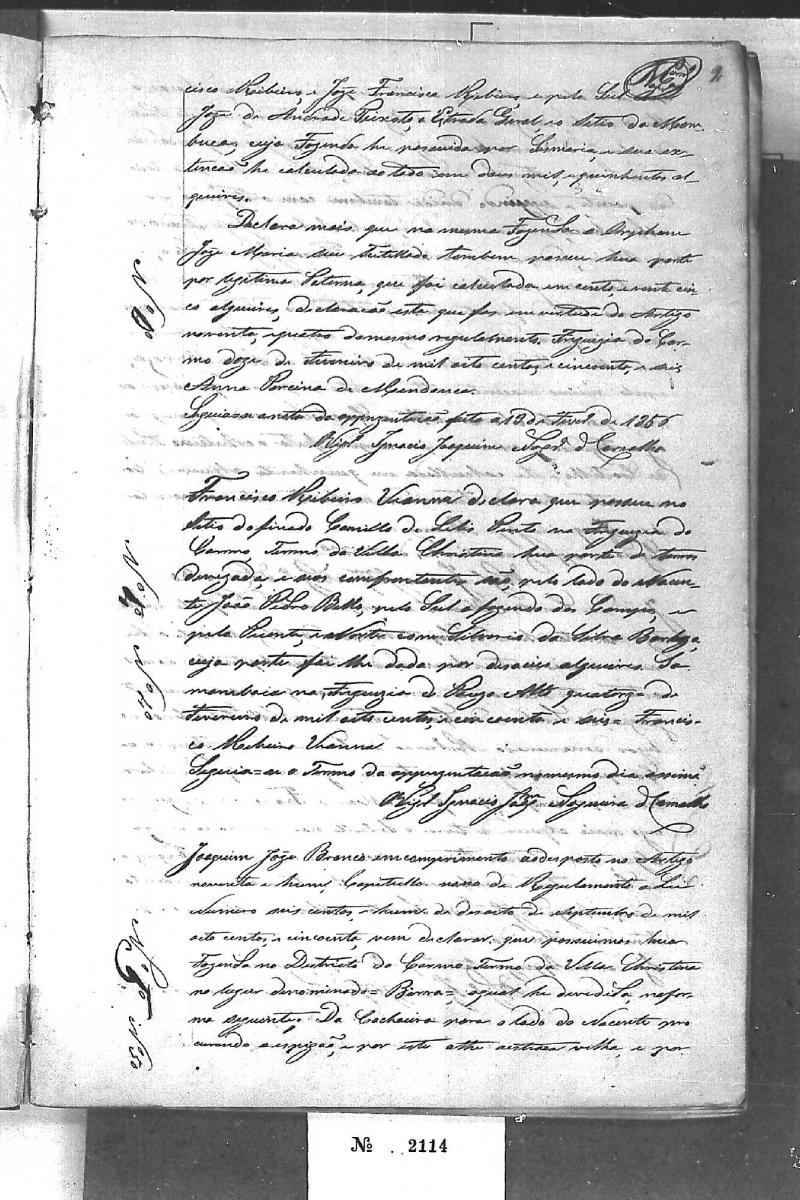 2
cisco Ribeiro, e Joze Francisco Ribeiro, e pelo Sul
Joze de Andrade Peixoto, e Estrada Geral, ao Sitio da Mam-
buca, cuja Fazenda he possuida por Simaria, e sua ex-
tenção he calculada ao todo em dous mil, e quinhentos al-
queires.
Declara mais que na mesma Fazenda o Orpham
Joze Maria seu tutellado tambem possue hua parte
por legitima Paterna, que foi calculada em cento, e vente cin-
co alqueires, declaracão esta que fas em vertude do Artigo
noventa, e quatro do mesmo regulamento. Freguezia do Car-
mo doze de Fevereiro de mil oito centos, e cincoenta, e seis
Anna Poreina de Mendonca.
Seguia=se a nota da apprezentacão feita a 13 de Fever.º de 1856
O Vigr.º Ignacio Joaquim Nogr.ª d Carvalho
Francisco Ribeiro Vianna declara que possue no
Sitio do finado Camillo de Lelis Pinto na Freguezia do
Carmo Termo da Villa Christina hua parte de terras
devizada, e seos comfrontantes são, pelo lado do Nacen-
te João Pedro Bello, pelo Sul a fazenda dos Campos, e
pelo Puente, e Norte com Silverio da Silva Barboza,
cuja parte foi lhe dada por desaceis alqueires. Sa-
mambaia na Freguezia de Pouzo Alto quatorze de
Fevereiro de mil oito centos, e cincoenta e seis= Francis-
co Ribeiro Vianna
Seguia=se o Termo da apprezentacão no mesmo dia assima
O Vigr.º Ignacio Joaq.m Nogueira d Carvalho
Joaquim Joze Branco em comprimento ao desposto no Artigo
noventa e hum Capitullo nono do Regulamento a Lei
Numero seis centos, e hum de desoito de Septembro de mil
oito centos, e cincoenta, vem declarar que possuimos hua
Fazenda no Districto do Carmo Termo da Villa Christina
no lugar denominado= Barra= aqual he devedida, na for-
ma seguinte. Da Cachoeira para o lado do Nacente pro
curando o espigão, e por este athe a estrada velha, e por
Nº 2114